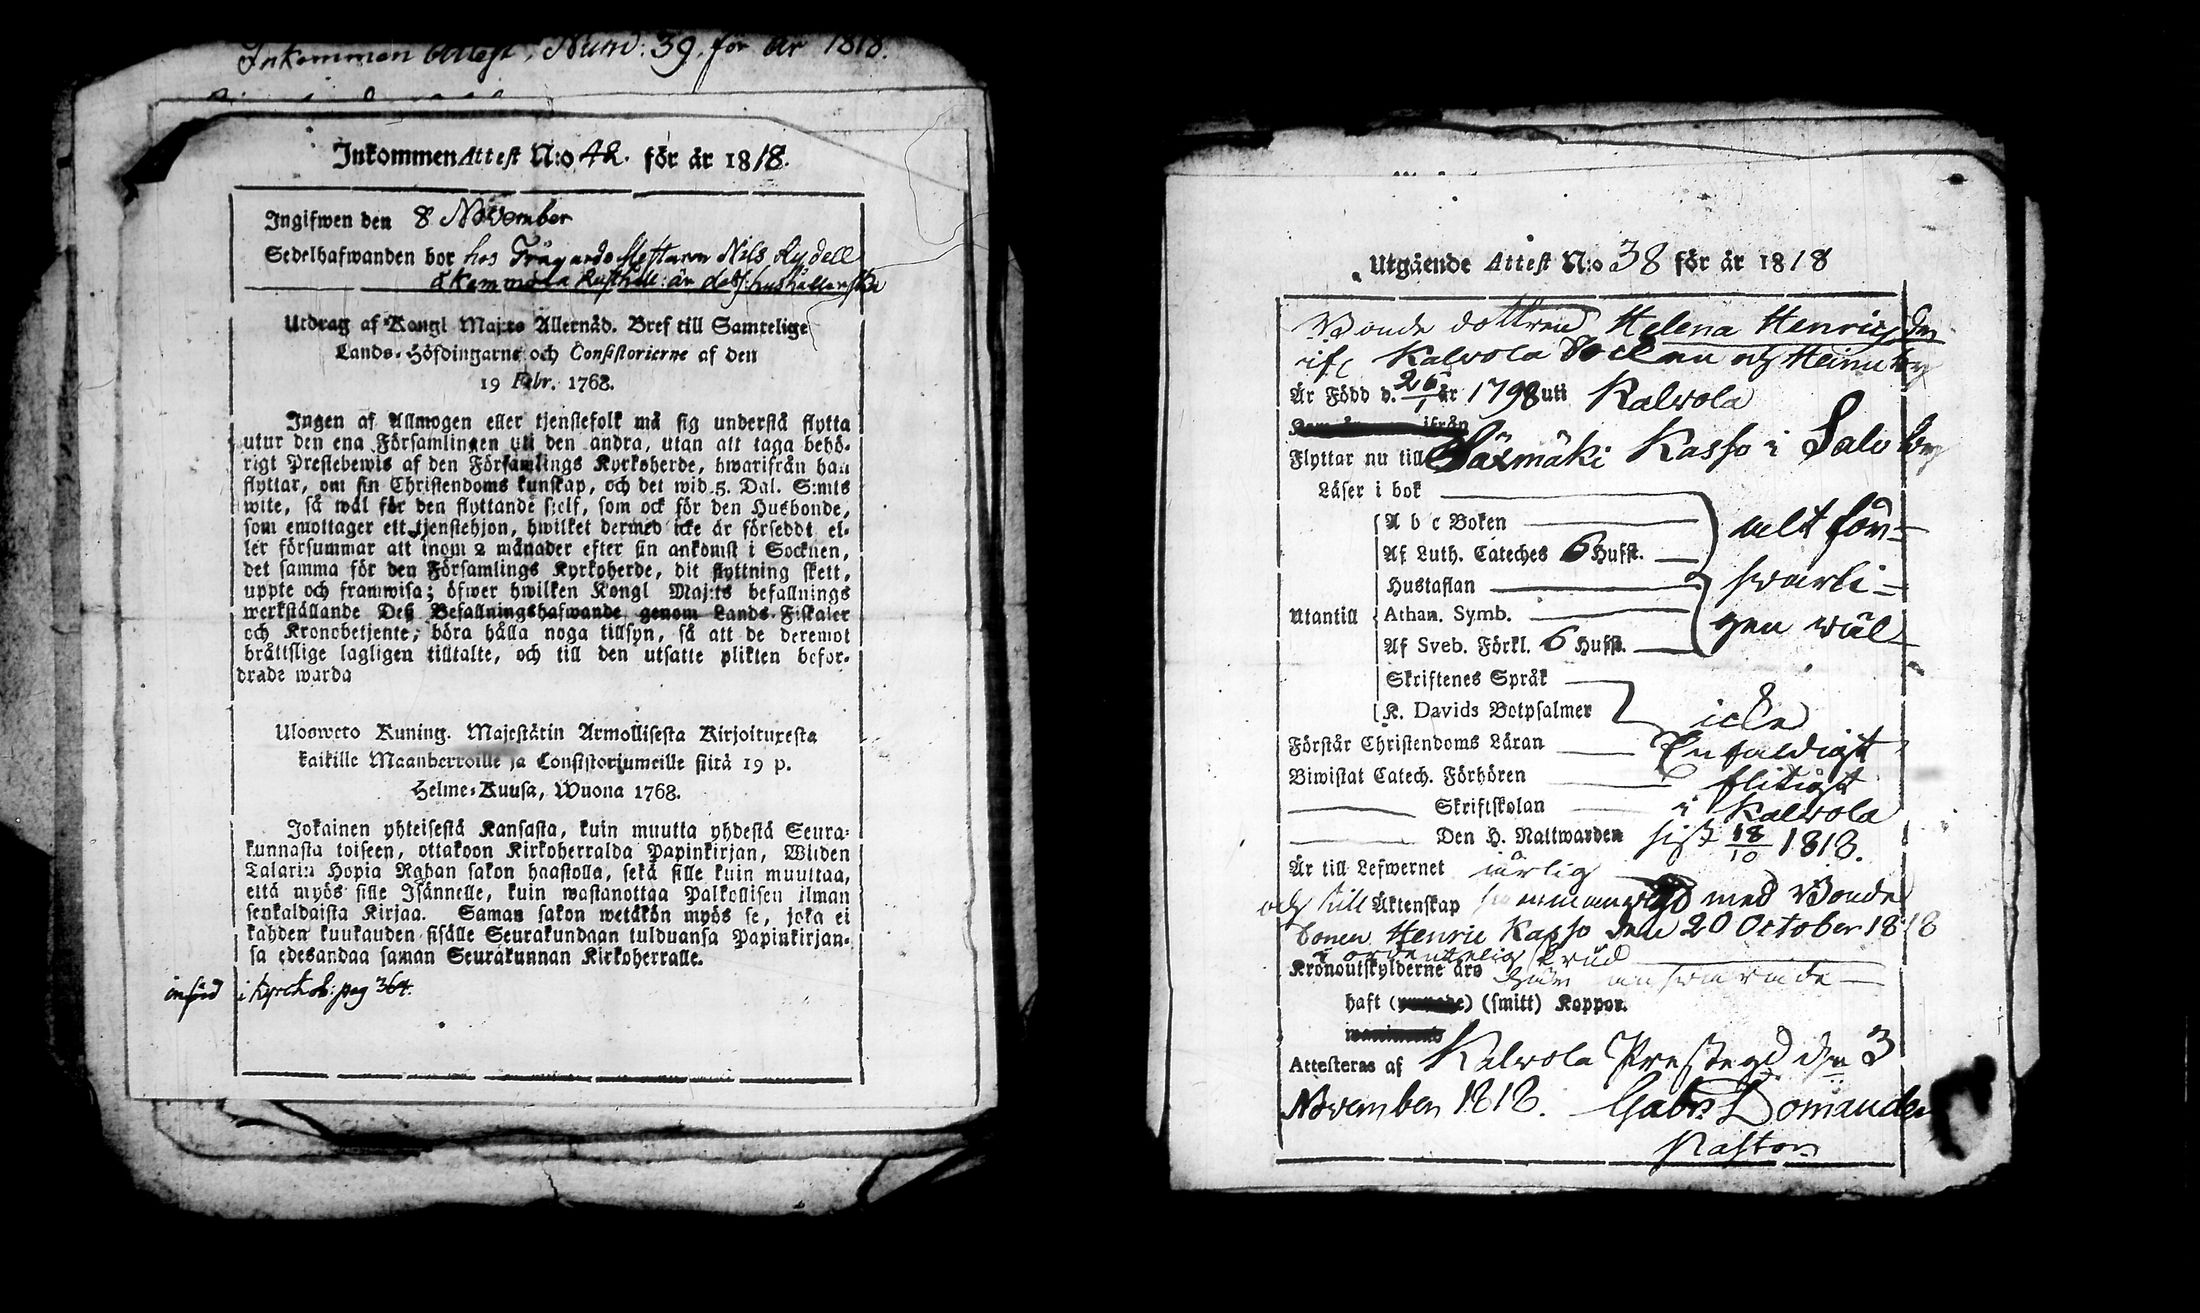 Inkommen Attest, Num: 39. för år 1818.
Inkommen Attest N:o 42. för år 1818.
Ingifwen den 8 November
Sedelhafwanden bor hos Trägårds Mestaren Nils Rydell
å Kemmola Rusthåll: är dess hushållerska
Utdrag af Kongl Maj:ts Allernåd. Bref till Samtelige
Lands-Höfdingarne och Consistorierne af den
19 Febr. 1768.
Ingen af Allmogen eller tjenstefolk må sig understå flytta
utur den ena Församlingen uti den andra, utan att taga behö-
rigt Prestebewis af den Församlings Kyrkoherde, hwarifrån han
flyttar, om sin Christendoms kunskap, och det wid 5. Dal. S:mts
wite, så wäl för den flyttande sjelf, som ock för den Husbonde,
som emottager ett tjenstehjon, hwilket dermed icke är försedt el-
ler försummar att inom 2 månader efter sin ankomst i Socknen,
det samma för den Församlings Kyrkoherde, dit flyttning skett,
uppte och framwisa; öfwer hwilken Kongl Maj:ts befallnings
werkställande Deß Befallningshafwande genom Lands-Fiskaler
och Kronobetjente, böra hålla noga tillsyn, så att de deremot
bråttslige lagligen tilltalte, och till den utsatte plikten befor-
drade warda
Ulosweto Kuning. Majestätin Armollisesta Kirjoituxesta
kaikille Maanherroille ja Consistoriumeille siitä 19 p.
Helme-Kuusa, Wuona 1768.
Jokainen yhteisestä Kansasta, kuin muutta yhdestä Seura-
kunnasta toiseen, ottakoon Kirkoherralda Papinkirjan, Wiiden
Talarin Hopia Rahan sakon haastolla, sekä sille kuin muuttaa,
että myös sille Isännelle, kuin wastanottaa Palkollisen ilman
senkaldaista Kirjaa. Saman sakon wetäkön myös se, joka ei
kahden kuukauden sisälle Seurakundaan tulduansa Papinkirjan-
sa edesandaa saman Seurakunnan Kirkoherralle.
införd i Kyrckob: pag 364.
Utgående Attest N:o 38 för år 1818
Bonde dottren Helena Henricsdr
ifr Kalvola Socken och Heinu by
Är Född d. 26/1 år 1798 uti Kalvola
ifrån
Flyttar nu till Säxmäki Kasso i Salo by
Läser i bok
A b c Boken
Af Luth. Cateches 6 Hufst.
Hustaflan
Utantill Athan. Symb.
Af Sveb. Förkl. 6 Hufst.
alt för-
svarli-
gen wäl
Skriftenes Språk
K. Davids Botpsalmer icke
Förstår Christendoms Läran Enfaldigt
Biwistat Catech. Förhören flitigt
Skriftskolan i Kalvola
Den H. Nattwarden sist 18/10 1818.
Är till Lefwernet ärlig
och till Äktenskap med Bonde
Sonen Henric Kasso den 20 October 1818
i ordentelig
Kronoutskylderne äro
haft (smitt) Koppor.
Attesteras af Kalvola Prestegd den 3
November 1818. Gabr. Domander
Pastor